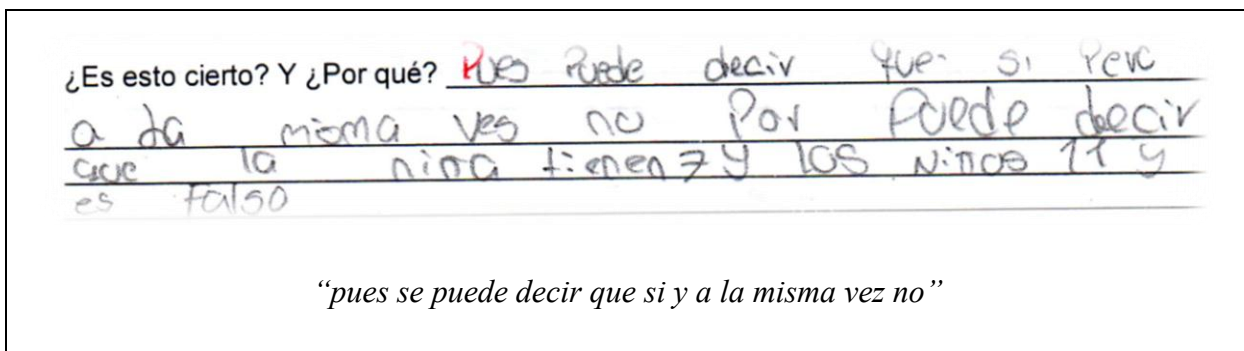 ¿Es esto cierto? Y ¿Por qué? Pues Puede decir que si Pero
a la misma ves no Por Puede decir
que la nina tienen 7 y los Ninos 11 y
es falso
“pues se puede decir que si y a la misma vez no”